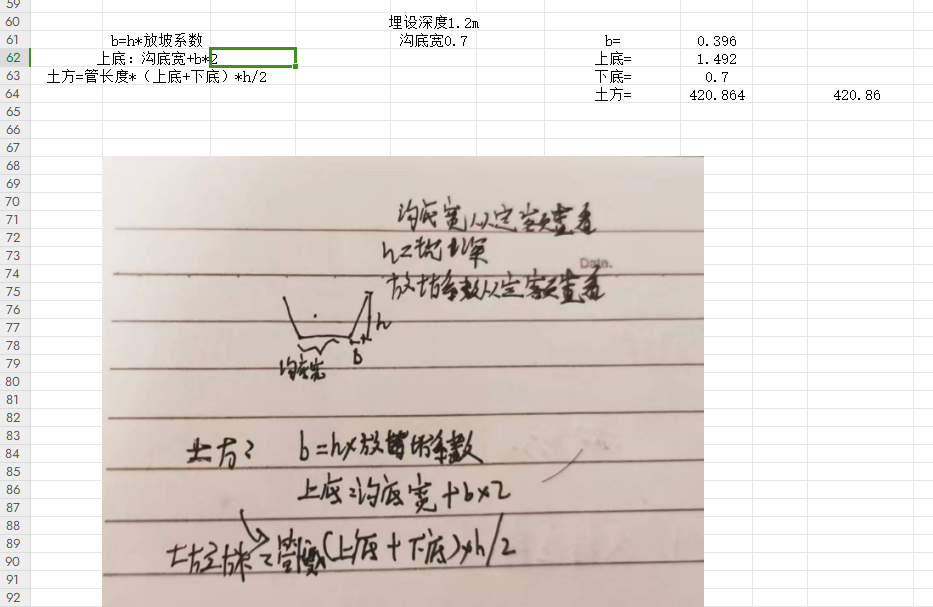 59
60 埋设深度1.2m
61 b=h*放坡系数 沟底宽0.7 b= 0.396
62 上底：沟底宽+b*2 上底= 1.492
63 土方=管长度*（上底+下底）*h/2 下底= 0.7
64 土方= 420.864 420.86
65
66
67
68
69
70
71 沟底宽从定额查看
72
73 h=挖土深
74 Date.
75 放坡系数从定额查看
76
77 h
78 B
79 沟底宽
80
81
82
83
84 土方: b=h×放坡系数
85
86 上底=沟底宽+b×2
87
88
89 土方 =管 (上底+下底)×h/2
90
91
92